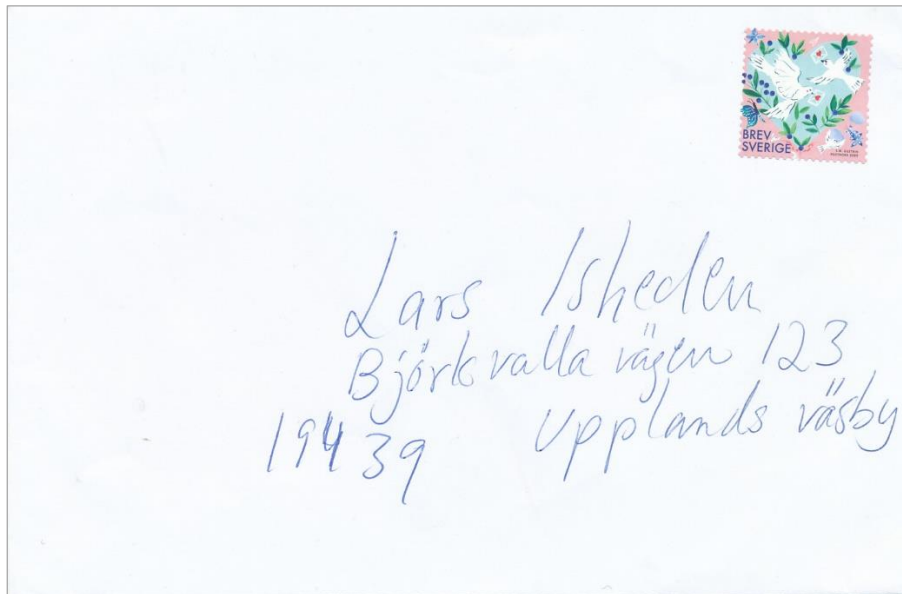 BREV
SVERIGE
Lars Isheden
Björkvalla vägen 123
194 39 Upplands väsby